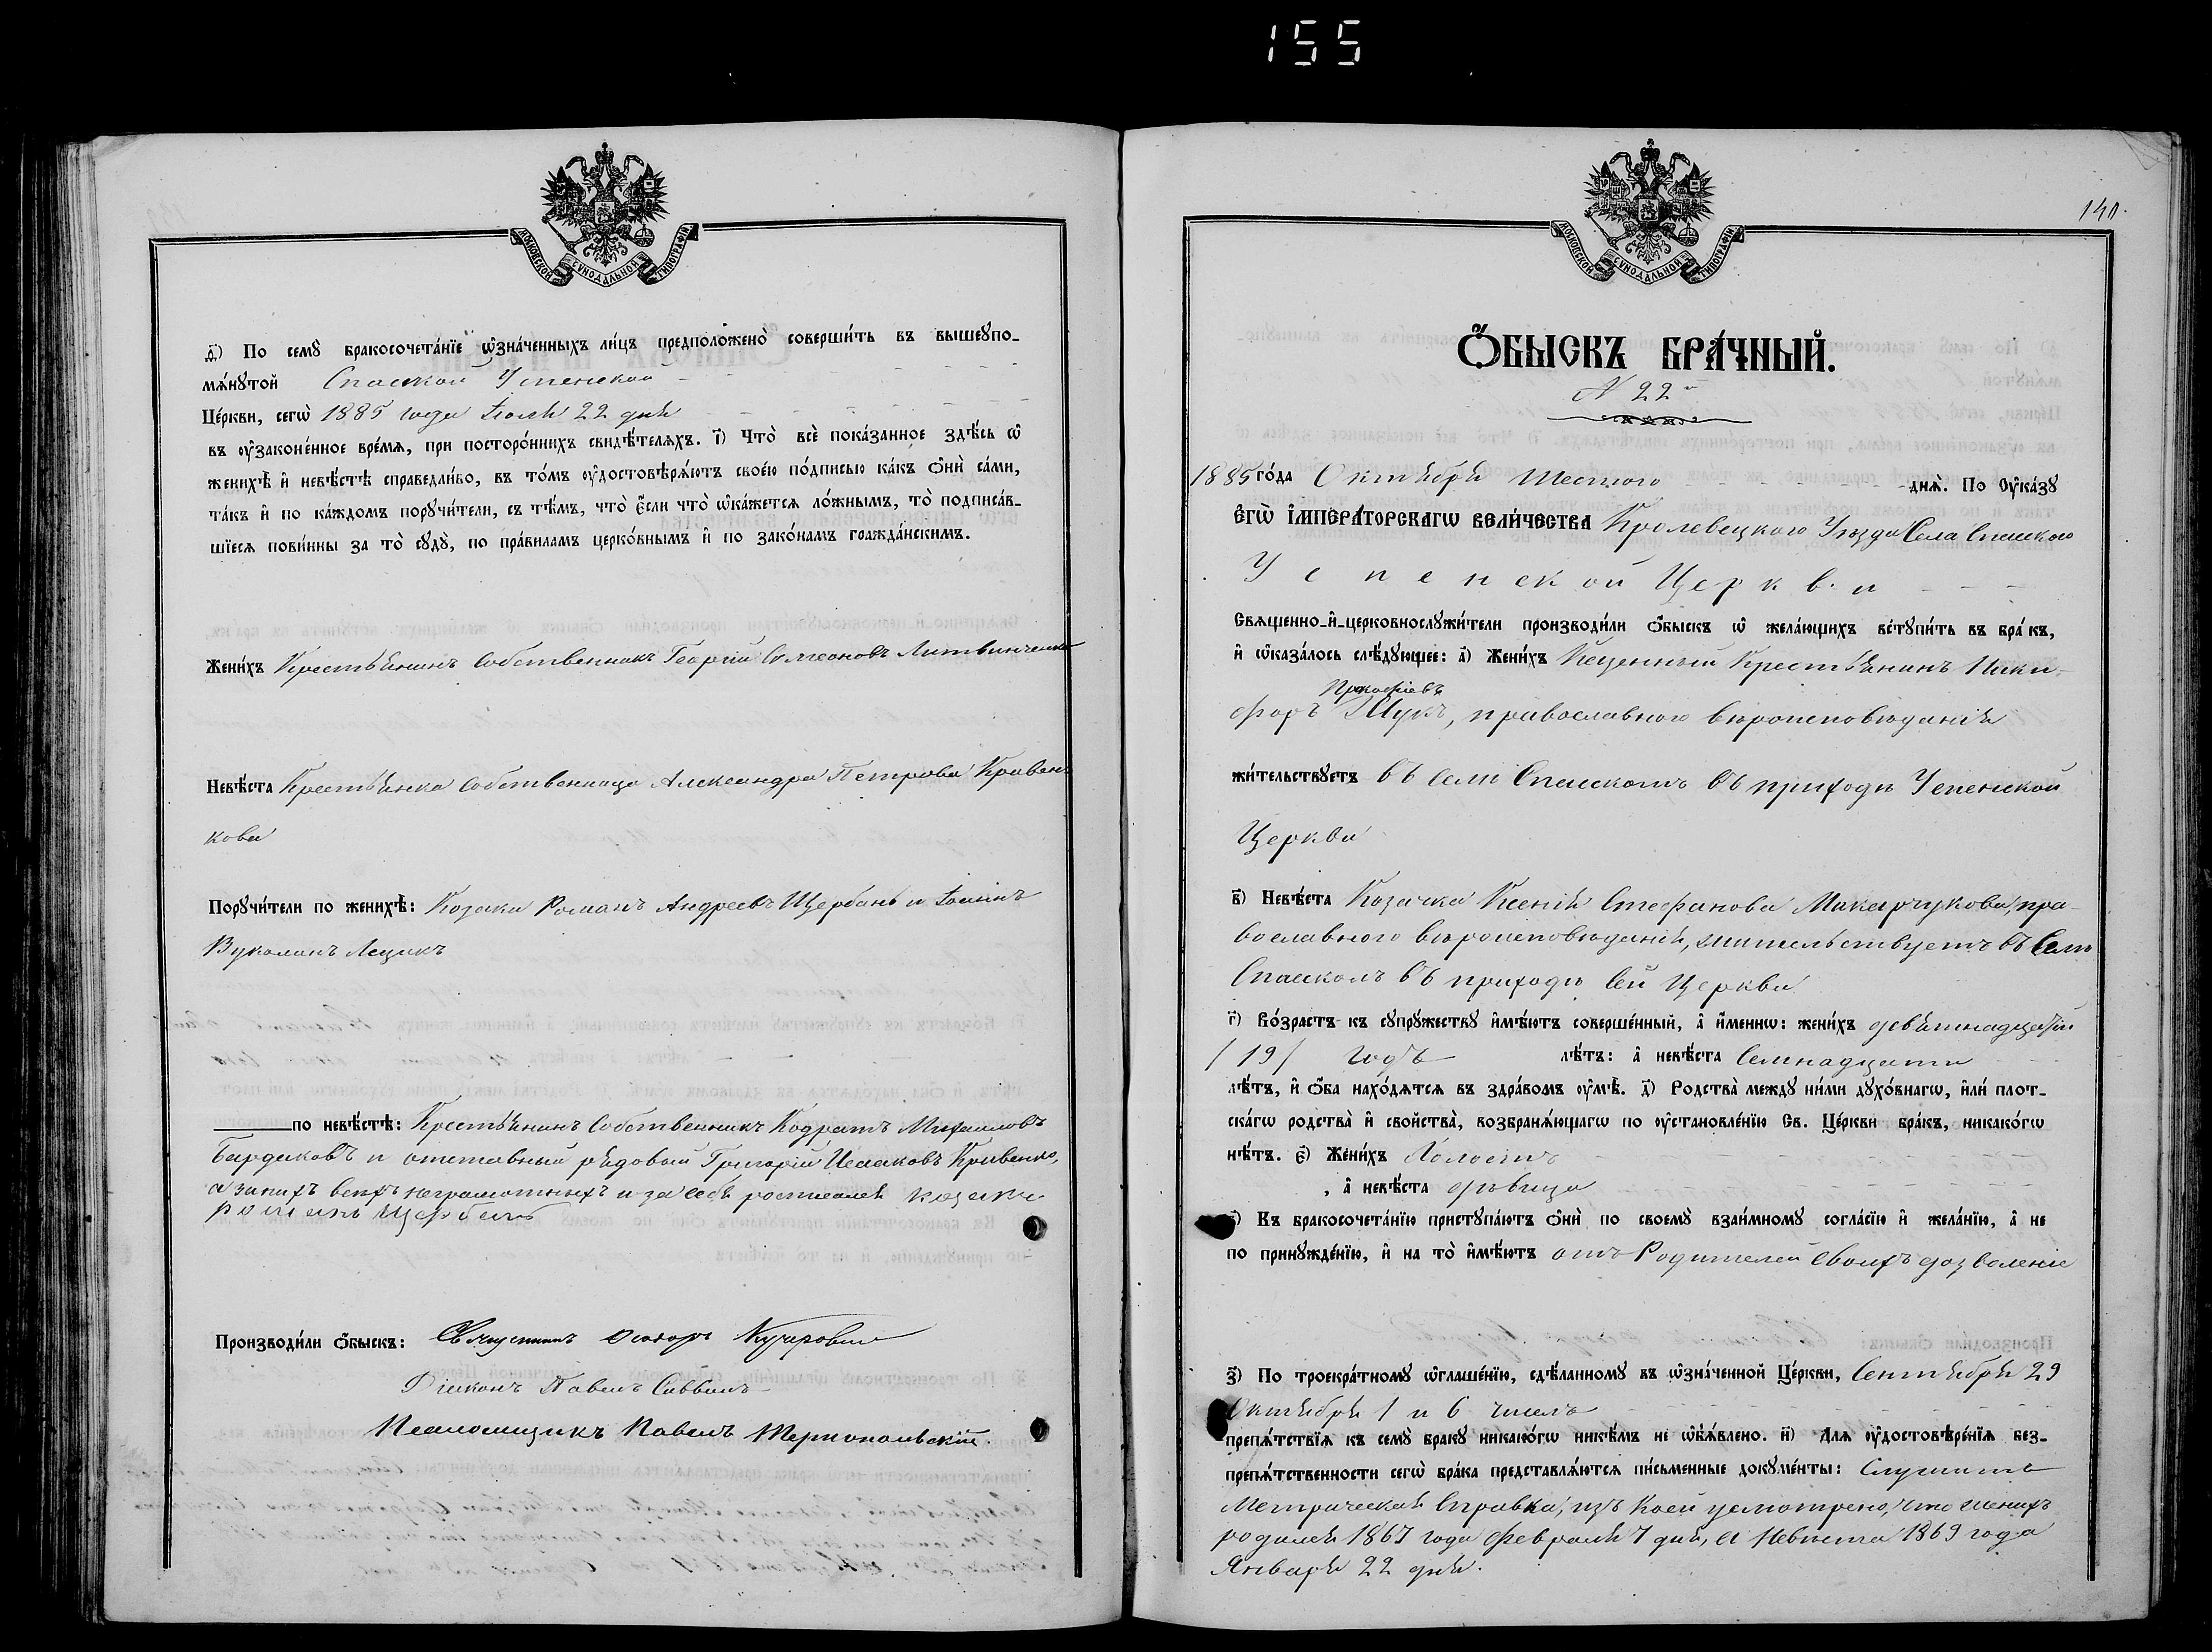 155
МОСКОВСКОЙ СѴНОДАЛЬНОЙ ТИПОГРАФІИ
д҃) По семꙋ̀ бракосочета́нїе ѡ҆зна́ченныхъ ли́цъ предполо́жено̀ соверши́ть въ вышеꙋпо-
мѧ́нꙋтой Спаской Успенской
Це́ркви, сегѡ̀ 1885 года Іюля 22 дня
въ ᲂу҆зако́не́нное вре́мѧ, при посторо́ннихъ свидѣ́телѧхъ. і҃) Что̀ всѐ пока́занное здѣ́сь ѡ҆
женихѣ̀ и҆ невѣ́стѣ справедли́во, въ то́мъ ᲂу҆достовѣрѧ́ютъ свое́ю по́дписью ка́къ ѻ҆нѝ са́ми,
та́къ и҆ по ка́ждомъ порꙋчи́тели, съ тѣ́мъ, что̀ є҆́сли что̀ ѡ҆ка́жетсѧ ло́жнымъ, то̀ подписа́в-
шїесѧ пови́нны за то̀ сꙋдꙋ̀, по пра́виламъ церко́внымъ и҆ по зако́намъ гражда́нскимъ.
Жени́хъ Крестьянинъ Собственникъ Георгій Симеоновъ Литвинченко
Невѣ́ста Крестьянка Собственница Александра Петрова Кривен
кова
Порꙋчи́тели по женихѣ̀: Козаки Романъ Андреевъ Щербань и Іоаннъ
Вуколовъ Лещикъ
по невѣ́стѣ: Крестьянинъ Собственникъ Кодратъ Михаиловъ
Бардаковъ и отставный рядовой Григорій Исааковъ Кривенко,
а за нихъ всѣхъ неграмотныхъ и за себя росписался козакъ
романъ Щербань
Производи́ли ѻ҆́быскъ: Священникъ Ѳеодоръ
Діаконъ Павелъ Саввинъ
Псаломщикъ Павелъ Тернопольскій.
140.
МОСКОВСКОЙ СѴНОДАЛЬНОЙ ТИПОГРАФІИ
Ѻ҆БЫСКЪ БРА́ЧНЫЙ.
N 22й
1885 го́да Октября Шестого днѧ̀. По Оу҆ка́зꙋ
Є҆гѡ̀ І҆мпера́торскагѡ вели́чества Кролевецкого Уѣзда Села Спаского
Успенской Церкви
Свѧщенно-и҆-церковнослꙋжи́тели производи́ли ѻ҆́быскъ ѡ҆ жела́ющихъ встꙋпи́ть въ бра́къ,
и҆ ѡ҆каза́лось слѣ́дꙋющее: а҃) Жени́хъ Казенный Крестьянинъ Ники-
Прокофіевъ
форъ Щукъ, православного вѣроисповѣданія
жи́тельствꙋетъ въ Селѣ Спасскомъ въ приходѣ Успенской
Церкви
в҃) Невѣ́ста Козачка Ксенія Стефанова Макарчукова, пра-
вославного вѣроисповѣданія, жительствуетъ въ Селѣ
Спасскомъ въ приходѣ сей Церкви
г҃) Во́зрастъ къ сꙋпрꙋ́жествꙋ и҆мѣ́ютъ соверше́нный, а҆ и҆́меннѡ: жени́хъ девятнадцатій
/19/ годъ лѣ́тъ: а҆ невѣ́ста Семнадцати
лѣ́тъ, и҆ ѻ҆́ба нахо́дѧтсѧ въ здра́вомъ ᲂу҆мѣ̀. д҃) Родства̀ междꙋ ни́ми дꙋхо́внагѡ, и҆лѝ плот-
ска́гѡ родства̀ и҆ свойства̀, возбранѧ́ющагѡ по ᲂу҆становле́нїю Св. Це́ркви бра́къ, никако́гѡ
нѣ́тъ. є҃) Жени́хъ Холостъ
, а҆ невѣ́ста дѣвица
) Къ бракосочета́нїю пристꙋпа́ютъ ѻ҆нѝ по своемꙋ̀ взаи́мномꙋ согла́сїю и҆ жела́нїю, а҆ не
по принꙋжде́нїю, и҆ на то̀ и҆мѣ́ютъ отъ Родителей своихъ дозволеніе
з҃) По троекра́тномꙋ ѡ҆глаше́нїю, сдѣ́ланномꙋ въ ѡ҆зна́ченной Це́ркви, Сентября 29
Октября 1 и 6 числъ
препѧ́тствїѧ къ семꙋ̀ бра́кꙋ никако́гѡ никѣ́мъ не ѡ҆б̾ѧ́влено. и҃) Длѧ ᲂу҆достовѣре́нїѧ без-
препѧ́тственности сегѡ̀ бра́ка представлѧ́ютсѧ пи́сьменные докꙋме́нты: Служитъ
Метрическая Справка, изъ коей усмотрено, что женихъ
родился 1867 года Февраля 7 дня, а Невѣста 1869 года
Января 22 дня.